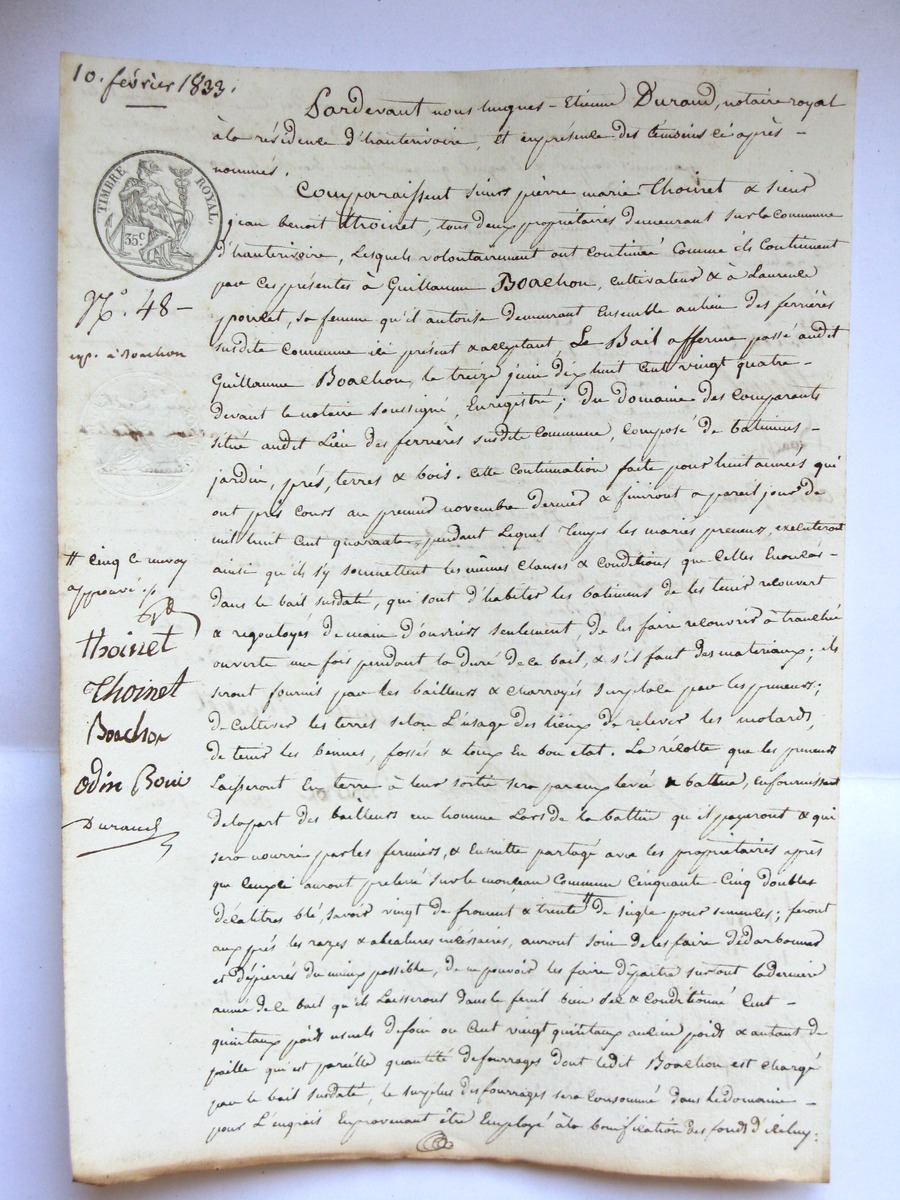 10. février 1833.
Pardevant nous hugues-Etienne Durand, notaire royal
à la résidence d'hauterivoire, et en présence des témoins ci après -
nommés.
Comparaissent sieurs pierre marie Thoinet & sieur
jean benoit Thoinet, tous deux propriétaires demeurant sur la commune
d'hauterivoire, Lesquels volontairement ont continué comme ils continuent
par ces présentes à Guillaume Boachon, cultivateur & à Laurence
poulet, sa femme qu'il autorise demeurant Ensemble au lieu des ferrières
susdite commune ici présent & acceptant Le Bail afferme passé audit
Guillaume Boachon, le treize juin dix huit Cent vingt quatre -
devant le notaire soussigné, Enregistré; du Domaine des comparants
situé audit Lieu des ferrières susdite Commune, composé de batimens -
jardin, prés, terres & bois. cette continuation faite pour huit années qui
ont pris cours au premier novembre dernier & finiront a pareil jour de
mil huit cent quarante, pendant Lequel temps les mariés preneurs, exécuteront
ainsi qu'ils s'y soumettent les mêmes clauses & conditions que celles Enoncées -
dans le bail susdaté, qui sont d'habiter les batimens de les tenir recouvert
& regouloyés de main d'ouvriers seulement, de les faire recouvrir à tranchée
ouverte une fois pendant la duré de ce bail, & s'il faut des materiaux; ils
seront fournis par les bailleurs & charroyés sur place par les preneurs;
de cultiver les terres selon L'usage des lieux de relever les molards,
de tenir les bennes, fossé & le tout En bon état. La récolte que les preneurs
Laisseront En terre à leur sortie sera par eux levée & battue, en fournissant
de la part des bailleurs un homme Lors de la battue qu'il payeront & qui
sera nourri par les fermiers, & Ensuitte partagé avec les propriétaires après
que ceux ci auront prelevé sur le monceau Commun Cinquante-Cinq doubles
décalitres blé, savoir vingt de froment & trente # de seigle pour semences; feront
aux prés les razes & abreuvures nécessaires, auront soin de les faire dédarbonner
et dépierrés du mieux possible, de ne pouvoir les faire dépaitre surtout la dernière
année de ce bail qu'ils Laisseront dans le fenil bien sec & conditionné Cent -
quintaux poids usuels de foin ou Cent vingt quintaux ancien poids & autant de
paille qui est pareille quantité de fourrages dont ledit Boachon est chargé
par le bail susdaté, le surplus des fourrages sera consommé dans le domaine -
pour L'engrais En provenant être Employé à la bonification des fonds d'icelui;
TIMBRE ROYAL
35c
N°. 48 -
exp. à Boachon
# cinq ce renvoy
approuvé ./.
Thoinet
Thoinet
Boachon
odin
Durand